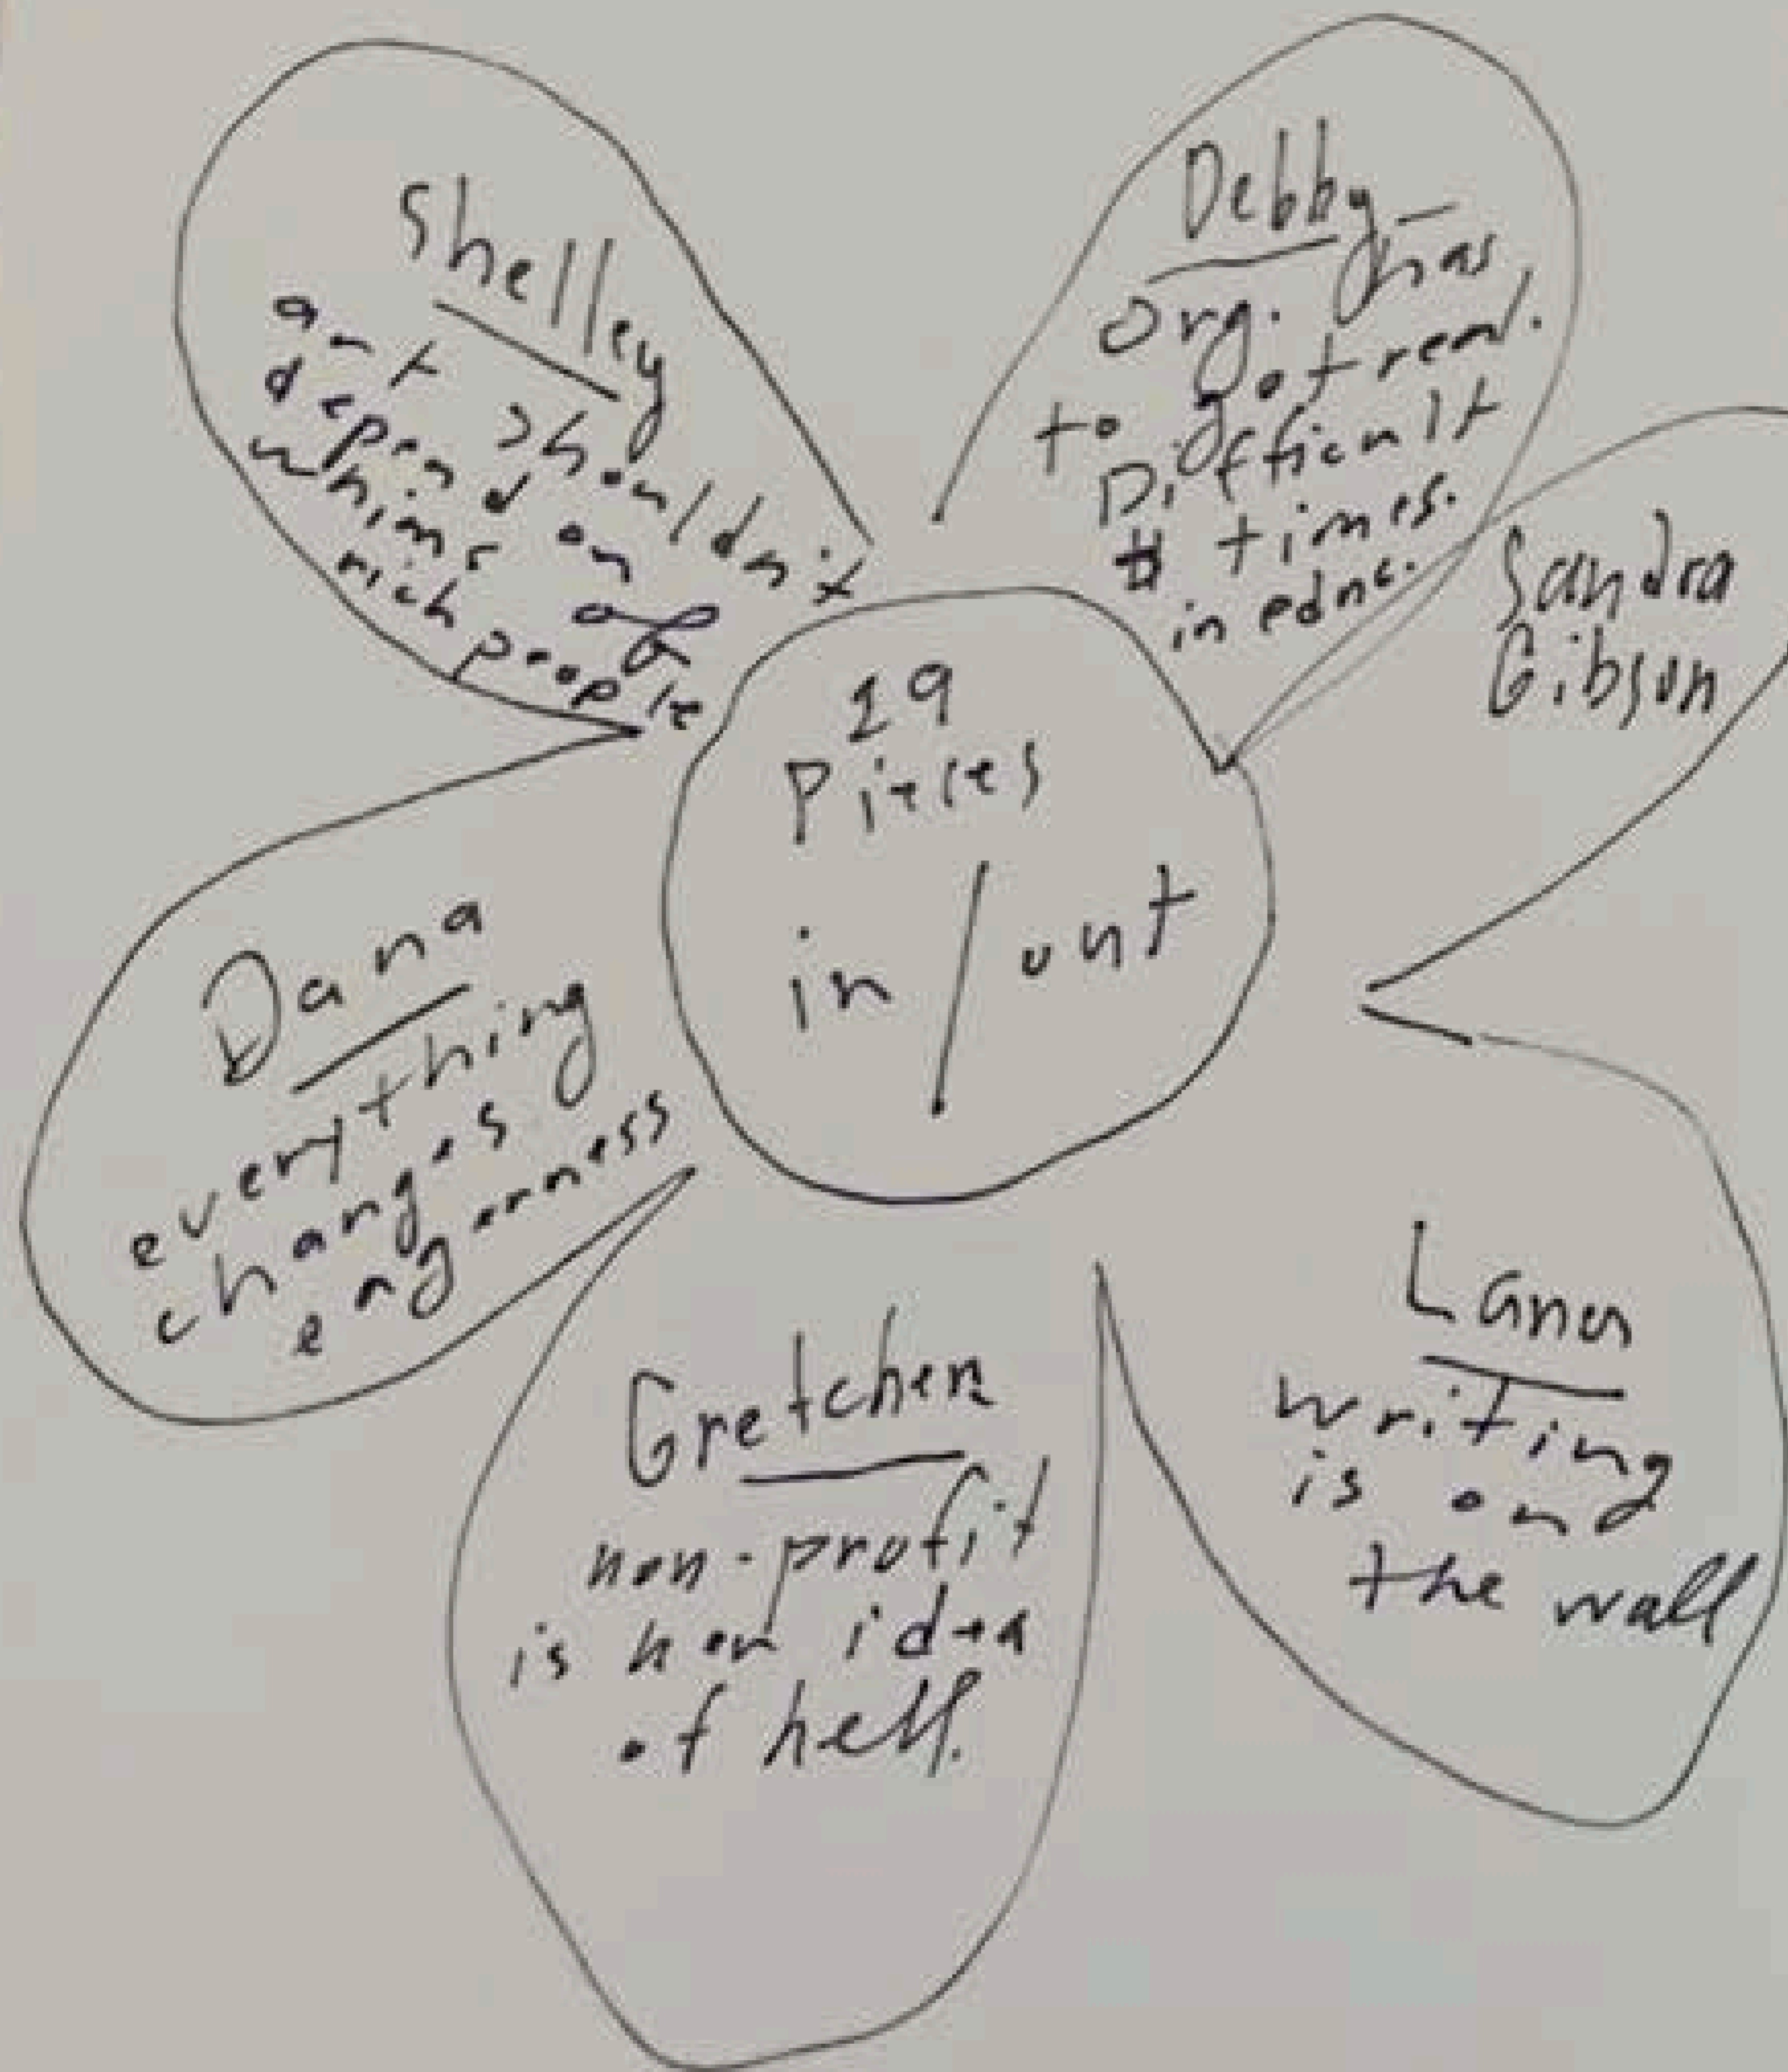 Shelley
art shouldn't
depend on
whims of
rich people
Debby -
Org. has
to get real.
Difficult
times.
in educ.
Sandra
Gibson
19
Pieces
in / out
Dana
everything
changes
eagerness
Gretchen
non-profit
is her idea
of hell.
Lana
writing
is on
the wall